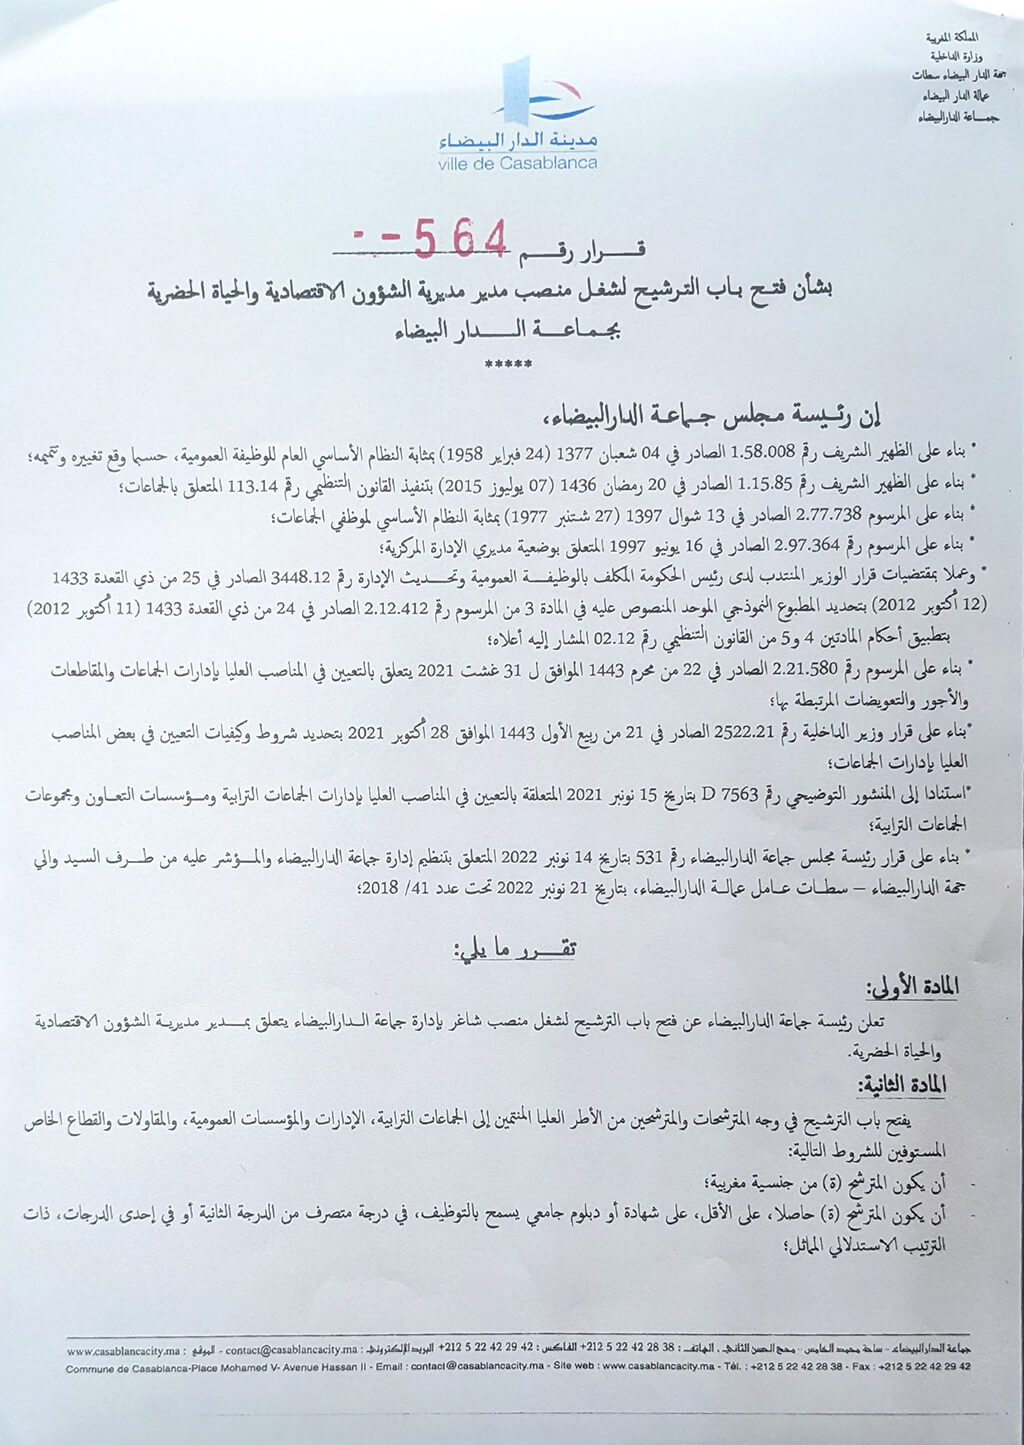 المملكة المغربية
وزارة الداخلية
جهة الدار البيضاء سطات
عمالة الدار البيضاء
جمـــاعة الدارالبيضاء
مدينة الدار البيضاء
ville de Casablanca
قــــرار رقــــم 564--
بشأن فتـح بـاب الترشيح لشغـل منصب مدير مديرية الشؤون الاقتصادية والحياة الحضرية
بجمـاعــة الـــــدار البيضاء
*****
إن رئيسة مجلس جماعة الدارالبيضاء،
* بناء على الظهير الشريف رقم 1.58.008 الصادر في 04 شعبان 1377 (24 فبراير 1958) بمثابة النظام الأساسي العام للوظيفة العمومية، حسبما وقع تغييره وتتميمه؛
* بناء على الظهير الشريف رقم 1.15.85 الصادر في 20 رمضان 1436 (07 يوليوز 2015) بتنفيذ القانون التنظيمي رقم 113.14 المتعلق بالجماعات؛
* بناء على المرسوم رقم 2.77.738 الصادر في 13 شوال 1397 (27 شتنبر 1977) بمثابة النظام الأساسي لموظفي الجماعات؛
* بناء على المرسوم رقم 2.97.364 الصادر في 16 يونيو 1997 المتعلق بوضعية مديري الإدارة المركزية؛
* وعملا بمقتضيات قرار الوزير المنتدب لدى رئيس الحكومة المكلف بالوظيفـــة العمومية وتحـــديث الإدارة رقم 3448.12 الصادر في 25 من ذي القعدة 1433
(12 أكتوبر 2012) بتحديد المطبوع النموذجي الموحد المنصوص عليه في المادة 3 من المرسوم رقم 2.12.412 الصادر في 24 من ذي القعدة 1433 (11 أكتوبر 2012)
بتطبيق أحكام المادتين 4 و5 من القانون التنظيمي رقم 02.12 المشار إليه أعلاه؛
* بناء على المرسوم رقم 2.21.580 الصادر في 22 من محرم 1443 الموافق ل 31 غشت 2021 يتعلق بالتعيين في المناصب العليا بإدارات الجماعات والمقاطعات
والأجور والتعويضات المرتبطة بها؛
*بناء على قرار وزير الداخلية رقم 2522.21 الصادر في 21 من ربيع الأول 1443 الموافق 28 أكتوبر 2021 بتحديد شروط وكيفيات التعيين في بعض المناصب
العليا بإدارات الجماعات؛
*استنادا إلى المنشور التوضيحي رقم D 7563 بتاريخ 15 نونبر 2021 المتعلقة بالتعيين في المناصب العليا بإدارات الجماعات الترابية ومـؤسسات التعـاون ومجموعات
الجماعات الترابية؛
* بناء على قرار رئيسة مجلس جماعة الدارالبيضاء رقم 531 بتاريخ 14 نونبر 2022 المتعلق بتنظيم إدارة جماعة الدارالبيضاء والمـؤشر عليه من طـرف السيد والي
جهة الدارالبيضاء – سطات عـامل عمالـة الدارالبيضاء، بتاريخ 21 نونبر 2022 تحت عدد 41/ 2018؛
تقـــرر ما يلي:
المادة الأولى:
تعلن رئيسة جماعة الدارالبيضاء عن فتح باب الترشيح لشغل منصب شاغر بإدارة جماعة الـدارالبيضاء يتعلق بمـــدير مديريـة الشؤون الاقتصادية
والحياة الحضرية.
المادة الثانية:
يفتح باب الترشيح في وجه المترشحات والمترشحين من الأطر العليا المنتمين إلى الجماعات الترابية، الإدارات والمؤسسات العمومية، والمقاولات والقطاع الخاص
المستوفين للشروط التالية:
- أن يكون المترشح (ة) من جنسية مغربية؛
- أن يكون المترشح (ة) حاصلا، على الأقل، على شهادة أو دبلوم جامعي يسمح بالتوظيف، في درجة متصرف من الدرجة الثانية أو في إحدى الدرجات، ذات
الترتيب الاستدلالي المماثل؛
جماعة الدارالبيضاء - ساحة محمد الخامس - محج الحسن الثاني. الهاتف : 38 28 42 22 5 212+ الفاكس : 42 29 42 22 5 212+ البريد الإلكتروني : contact@casablancacity.ma - الموقع : www.casablancacity.ma
Commune de Casablanca-Place Mohamed V- Avenue Hassan II - Email : contact@casablancacity.ma - Site web : www.casablancacity.ma - Tél. : +212 5 22 42 28 38 - Fax : +212 5 22 42 29 42